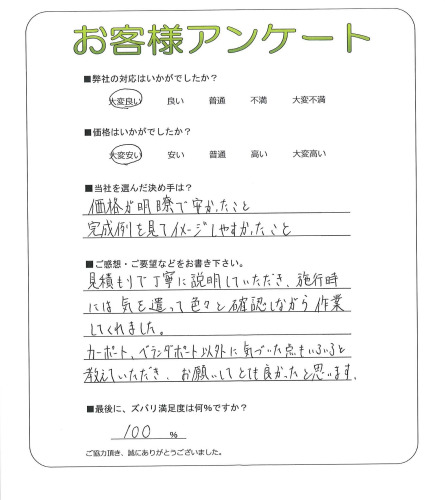 お客様アンケート
■弊社の対応はいかがでしたか？
大変良い 良い 普通 不満 大変不満
■価格はいかがでしたか？
大変安い 安い 普通 高い 大変高い
■当社を選んだ決め手は？
価格が明瞭で安かったこと
完成例を見てイメージしやすかったこと
■ご感想・ご要望などをお書き下さい。
見積もりで丁寧に説明していただき、施行時
には気を遣って色々と確認しながら作業
してくれました。
カーポート、ベランダポート以外に気づいた点もいろいろと
教えていただき、お願いしてとても良かったと思います。
■最後に、ズバリ満足度は何%ですか？
100 %
ご協力頂き、誠にありがとうございました。